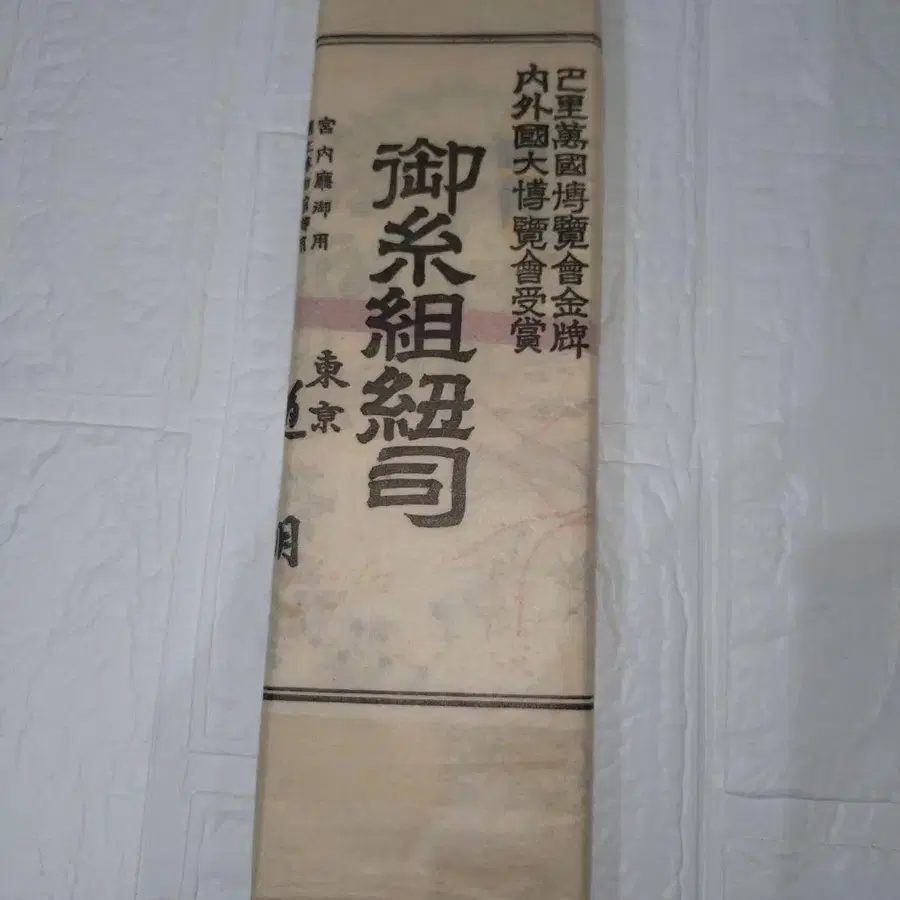 巴里萬國博覽會金牌
内外國大博覽會受賞
御糸組紐司
宮内廳御用
東京
道明